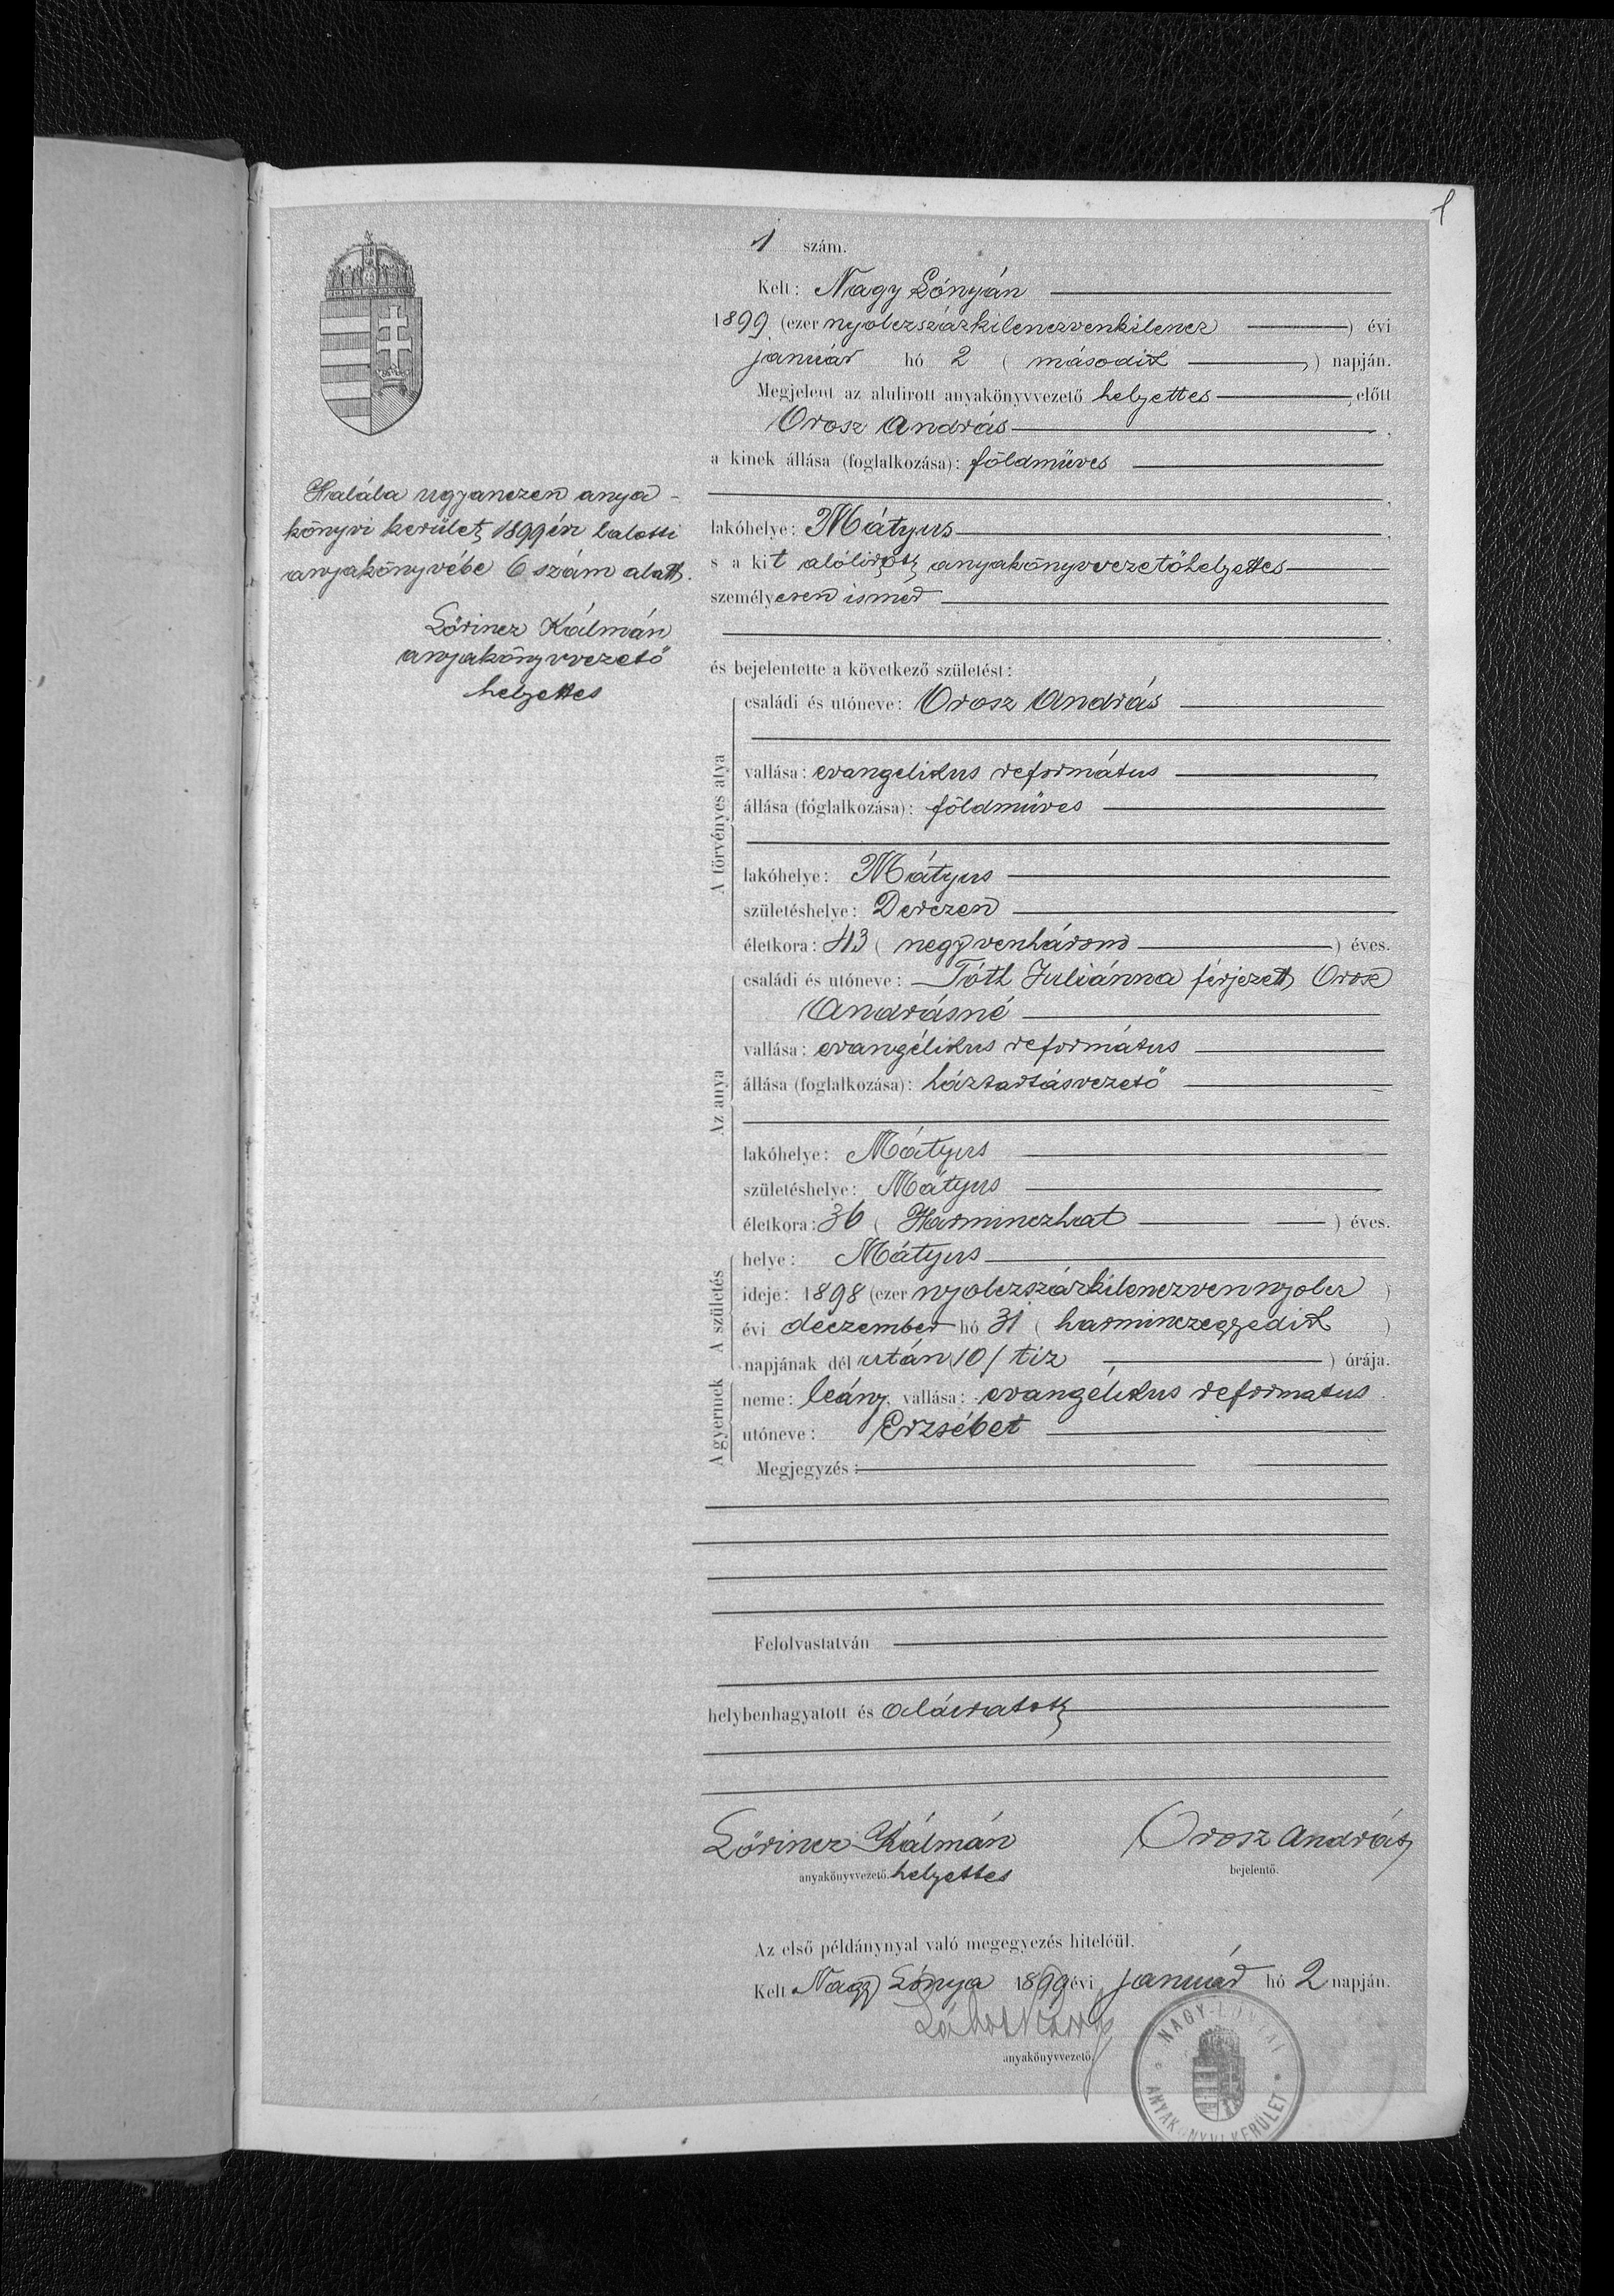 1
1 szám.
Kelt: Nagy Lónyán
1899 (ezer nyolczszázkilenczvenkilencz) évi
január hó 2 (második) napján.
Megjelent az alulirott anyakönyvvezető helyettes előtt
Orosz András,
a kinek állása (foglalkozása): földmüves
lakóhelye: Mátyus,
s a kit alólirott anyakönyvvezetőhelyettes
személyesen ismer
és bejelentette a következő születést:
A törvényes atya
családi és utóneve: Orosz András
vallása: evangelikus református
állása (foglalkozása): földmüves
lakóhelye: Mátyus
születéshelye: Derczen
életkora: 43 (negyvenhárom) éves.
Az anya
családi és utóneve: Tóth Juliánna férjezett Orosz
Andrásné
vallása: evangélikus református
állása (foglalkozása): háztartásvezető
lakóhelye: Mátyus
születéshelye: Mátyus
életkora: 36 (Harminczhat) éves.
A születés
helye: Mátyus
ideje: 1898 (ezer nyolczszázkilenczvennyolcz)
évi deczember hó 31 (harminczegyedik)
napjának dél után 10 (tiz) órája.
A gyermek
neme: leány, vallása: evangélikus reformatus
utóneve: Erzsébet
Megjegyzés:
Felolvastatván
helybenhagyatott és aláiratott
Lőrincz Kálmán
anyakönyvvezető helyettes
Orosz András
bejelentő.
Az első példánynyal való megegyezés hiteléül.
Kelt Nagy Lónya 1899 évi január hó 2 napján.
anyakönyvvezető.
NAGY-LÓNYAI
ANYAKÖNYVI KERÜLET
Halála ugyanezen anya-
könyvi kerület 1899 évi halotti
anyakönyvébe 6 szám alatt.
Lőrincz Kálmán
anyakönyvvezető
helyettes